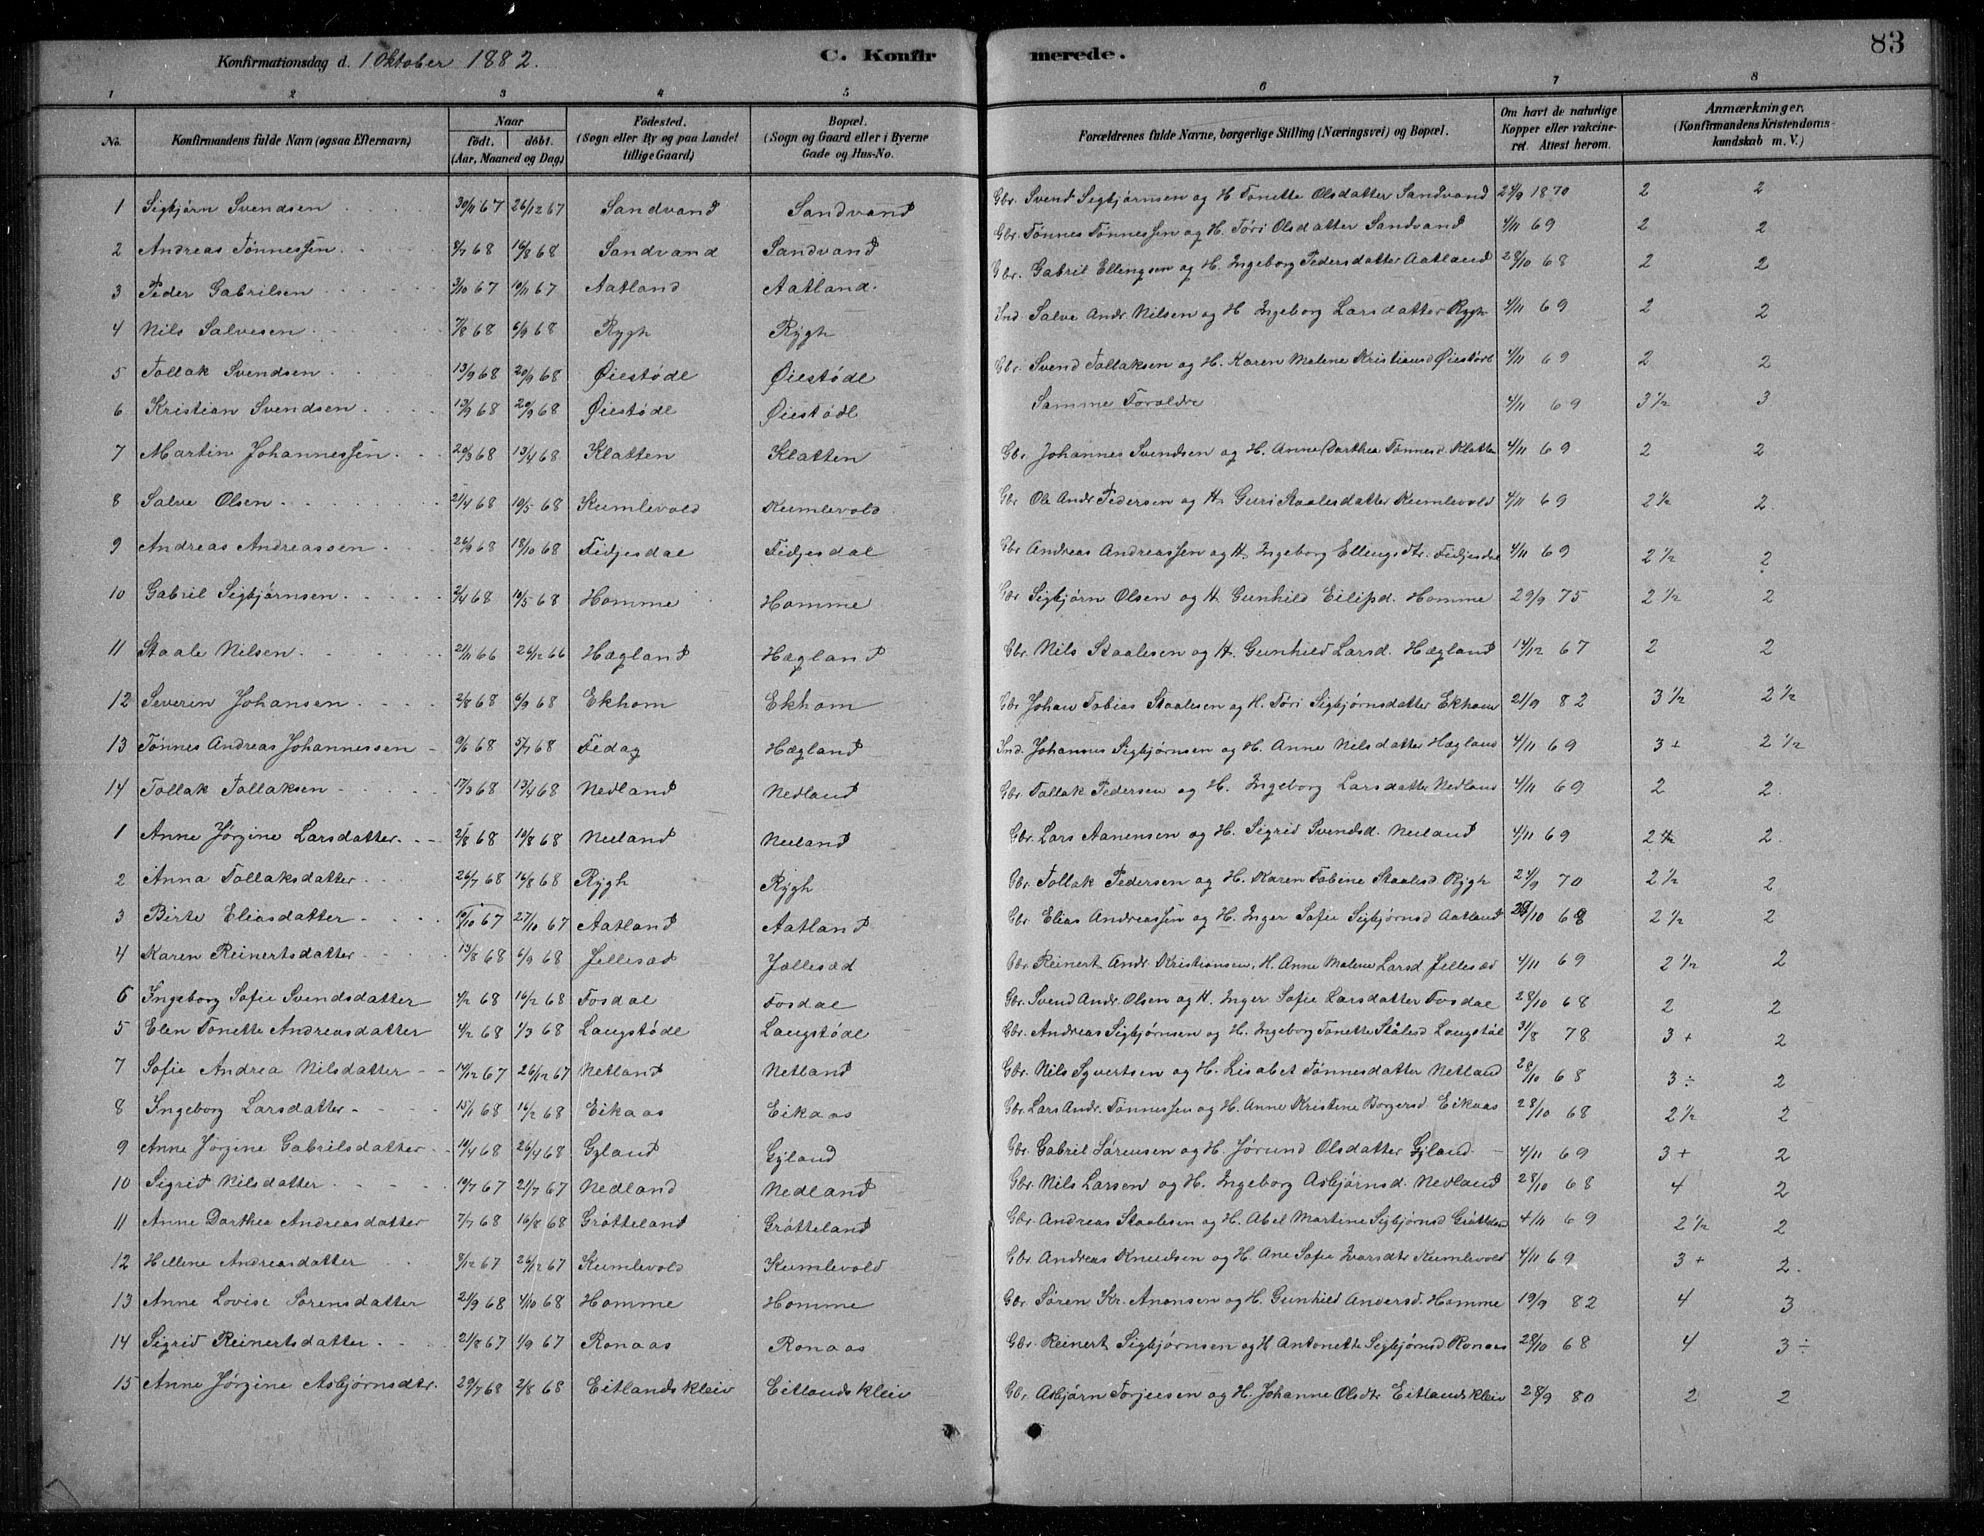 Konfirmationsdag d. 1 Oktober 1882. C. Konfirmerede. 83
1 2 3 4 5 6 7 8
No. Konfirmandens fulde Navn (ogsaa Efternavn) Naar født. døbt. (Aar, Maaned og Dag) Fødested. (Sogn eller By og paa Landet tillige Gaard) Bopæl. (Sogn og Gaard eller i Byerne Gade og Hus-No. Forældrenes fulde Navne, borgerlige Stilling (Næringsvei) og Bopæl. Om havt de naturlige Kopper eller vakcineret. Attest herom. Anmærkninger. (Konfirmandens Kristendomskundskab m. V.)
1 Sigbjørn Svendsen 30/11 67 26/12 67 Sandvand Sandvand Gbr. Svend Sigbjørnsen og H. Tonette Olsdatter Sandvand 24/9 1870 2 2
2 Andreas Tønnessen 8/7 68 16/8 68 Sandvand Sandvand Gbr. Tønnes Tønnessen og H. Tøri Olsdatter Sandvand 4/11 69 2 2
3 Peder Gabrilsen 3/10 67 10/11 67 Aatland Aatland. Gbr. Gabril Ellengsen og H. Ingeborg Pedersdatter Aatland 28/10 68 2 2
4 Nils Salvesen 7/8 68 6/9 68 Rygh Rygh Ind. Salve Andr. Nilsen og H Ingeborg Larsdatter Rygh 4/11 69 2 2
5 Tollak Svendsen 13/9 68 20/9 68 Øiestøde Øiestøde Gbr. Svend Tollaksen og H. Karen Malene Kristiansd Øiestøl 4/11 69 2 2
6 Kristian Svendsen 13/9 68 20/9 68 Øiestøde Øiestøde Samme Forældre 4/11 69 3 1/2 3
7 Martin Johannessen 20/3 68 13/4 68 Klatten Klatten Gbr Johannes Svendsen og H. Anne Dorthea Tønnesd. Klatten 4/11 69 2 2
8 Salve Olsen 21/4 68 10/5 68 Kumlevold Kumlevold Gbr Ole Andr Pedersen og H. Guri Staalesdatter Kumlevold 4/11 69 2 1/2 2.
9 Andreas Andreassen 26/9 68 18/10 68 Fidjesdal Fidjesdal Gbr Andreas Andreassen og H Ingeborg Ellingsdtr. Fidjesdal 4/11 69 2 1/2 2
10 Gabril Sigbjørnsen 2/4 68 10/5 68 Homme Homme Gbr Sigbjørn Olsen og H Gunhild Eilifsd. Homme 29/9 75 2 1/2 2
11 Staale Nilsen 21/11 66 26/12 66 Hægland Hægland Gbr. Nils Staalesen og H. Gunhild Larsd. Hægland 14/12 67 2 2
12 Severin Johansen 2/8 68 6/9 68 Ekhom Ekhom Gbr Johan Tobias Staalesen og H. Tøri Sigbjørnsdatter Ekhom 21/9 82 3 1/2 2 1/2
13 Tønnes Andreas Johannessen 9/6 68 5/7 68 Fedag Hægland Ind. Johannes Sigbjørnsen og H. Anne Nilsdatter Hægland 4/11 69 3 + 2 1/2
14 Tollak Tollaksen 17/3 68 13/4 68 Nedland Nedland Gbr Tollak Pedersen og H. Ingeborg Larsdatter Nedland 4/11 69 2 2.
1 Anne Jørgine Larsdatter 2/8 68 10/8 68 Nuland Nuland Gbr. Lars Aanensen og H. Sigrid Svendsd. Nuland 4/11 69 2 2.
2 Anna Tollaksdatter 26/7 68 16/8 68 Rygh Rygh Gbr. Tollak Pedersen og H. Karen Tobine Staalesd Rygh 24/9 70 2 1/2 2
3 Birte Eliasdatter 10/10 67 27/10 67 Aatland Aatland Gbr. Elias Andreassen og H. Inger Sofie Sigbjørnsd Aatland 28/10 68 2 1/2 2
4 Karen Reinertsdatter 13/8 68 6/9 68 Jellesæd Jællesæd Gbr. Reinert Andr. Kristiansen, H. Anne Malene Larsd Jellesæd 4/11 69 2 1/2 2
6 Ingeborg Sofie Svendsdatter 4/2 68 16/2 68 Fosdal Fosdal Gbr. Svend Andr. Olsen og H. Inger Sofie Larsdatter Fosdal 28/10 68 2 2
5 Elen Tonette Andreasdatter 4/2 68 1/3 68 Laugstøde Laugstøde Gbr. Andreas Sigbjørnsen og H. Ingeborg Tonette Stålesd Laugstøl 31/8 78 3 + 2
7 Sofie Andrea Nilsdatter 14/12 67 26/12 67 Netland Netland Gbr. Nils Syvertsen og H. Lisabet Tønnesdatter Netland 28/10 68 3 ÷ 2
8 Ingeborg Larsdatter 15/1 68 16/2 68 Eikaas Eikaas Gbr. Lars Andr. Tønnessen og H. Anne Kristine Borgersd Eikaas 28/10 68 2 1/2 2
9 Anne Jørgine Gabrilsdatter 10/4 68 26/4 68 Gyland Gyland Gbr. Gabril Sørensen og H. Jørund Olsdatter Gyland 4/11 69 3 + 2
10 Sigrid Nilsdatter 10/7 67 21/7 67 Nedland Nedland Gbr. Nils Larsen og H. Ingeborg Asbjørnsd. Nedland 28/10 68 4 2
11 Anne Dorthea Andreasdatter 7/7 68 16/8 68 Grøtteland Grøtteland Gbr. Andreas Staalesen og H. Abel Martine Sigbjørnsd Grøtteland 4/11 69 2 1/2 2
12 Hellene Andreasdatter 8/12 67 26/12 67 Kumlevold Kumlevold Gbr. Andreas Knudsen og H. Ane Sofie Ivarsdtr Kumlevold 4/11 69 3 + 2.
13 Anne Lovise Sørensdatter 21/9 68 4/10 68 Homme Homme Gbr. Søren Kr. Anonsen og H. Gunhild Andersd. Homme 19/9 82 4 3
14 Sigrid Reinertsdatter 21/8 67 1/9 67 Ronaas Ronaas Gbr. Reinert Sigbjørnsen og H Antonette Sigbjørnsd Ronaas 28/10 68 4 3 ÷
15 Anne Jørgine Asbjørnsdtr. 29/7 68 2/8 68 Eitlandskleiv Eitlandskleiv Gbr. Asbjørn Torjussen og H. Johanne Olsdtr Eitlandskleiv 28/9 80 2 2